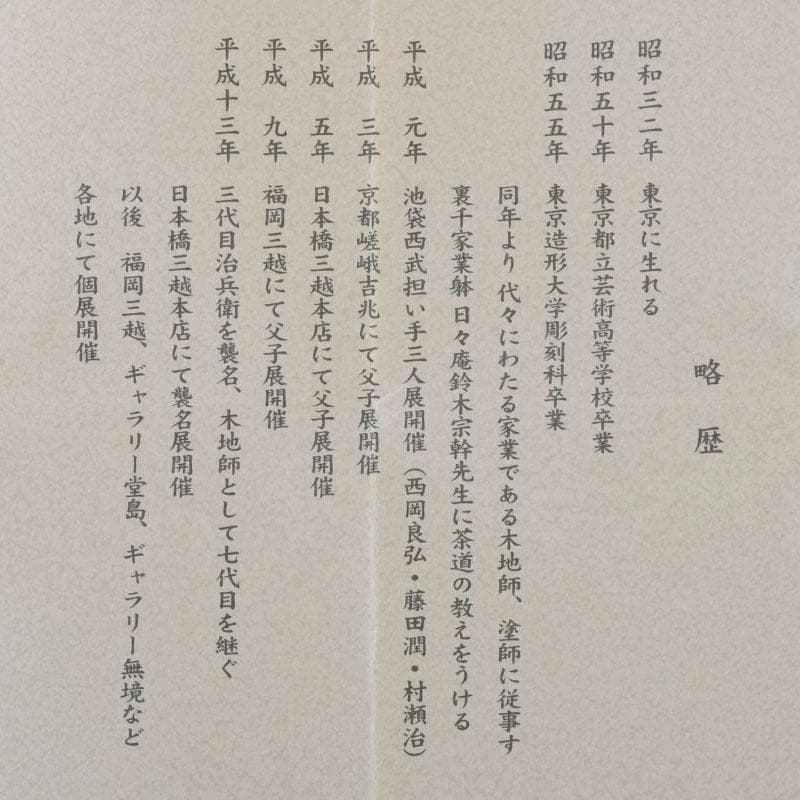 略歴
昭和三二年 東京に生れる
昭和五十年 東京都立芸術高等学校卒業
昭和五五年 東京造形大学彫刻科卒業
同年より 代々にわたる家業である木地師、塗師に従事す
裏千家業躰 日々庵鈴木宗幹先生に茶道の教えをうける
平成 元年 池袋西武担い手三人展開催（西岡良弘・藤田潤・村瀬治）
平成 三年 京都嵯峨吉兆にて父子展開催
平成 五年 日本橋三越本店にて父子展開催
平成 九年 福岡三越にて父子展開催
平成十三年 三代目治兵衛を襲名、木地師として七代目を継ぐ
日本橋三越本店にて襲名展開催
以後 福岡三越、ギャラリー堂島、ギャラリー無境など
各地にて個展開催